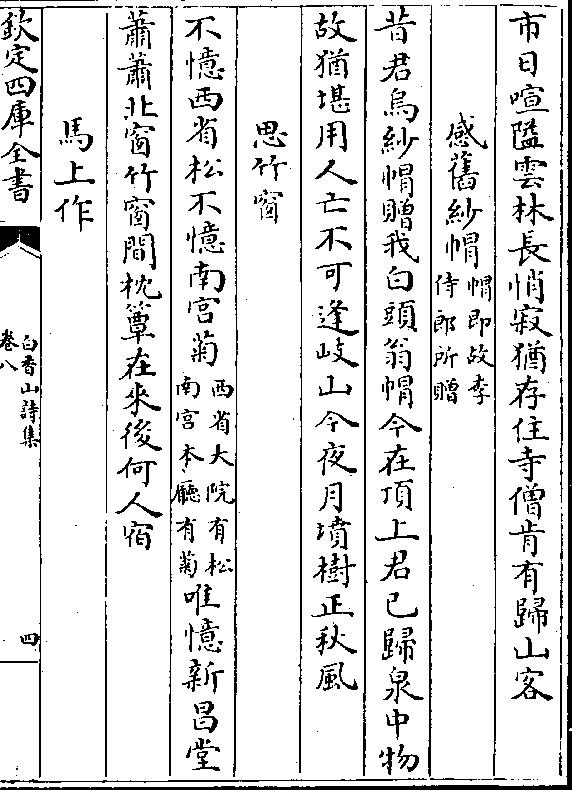 市日喧隘雲林長悄寂猶存住寺僧肯有歸山客
感舊紗帽帽即故李
侍郎所贈
昔君烏紗帽贈我白頭翁帽今在項上君已歸泉中物
故猶堪用人亡不可逢岐山今夜月墳樹正秋風
思竹窗
不憶西省松不憶南宮菊西省大院有松
南宮本廳有菊唯憶新昌堂
蕭蕭北窗竹窗間枕簟在來後何人宿
馬上作
欽定四庫全書
白香山詩集
卷八
四